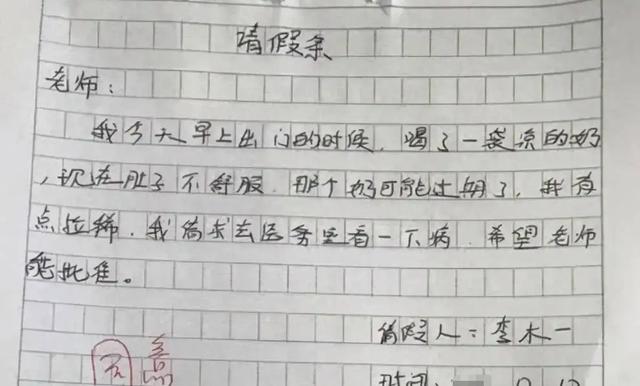 请假条
老师：
我今天早上出门的时候，喝了一袋凉的奶
，现在肚子不舒服．那个奶可能过期了，我有
点拉稀．我请求去医务室看一下病．希望老师
能批准。
请假人：李木一
时间：